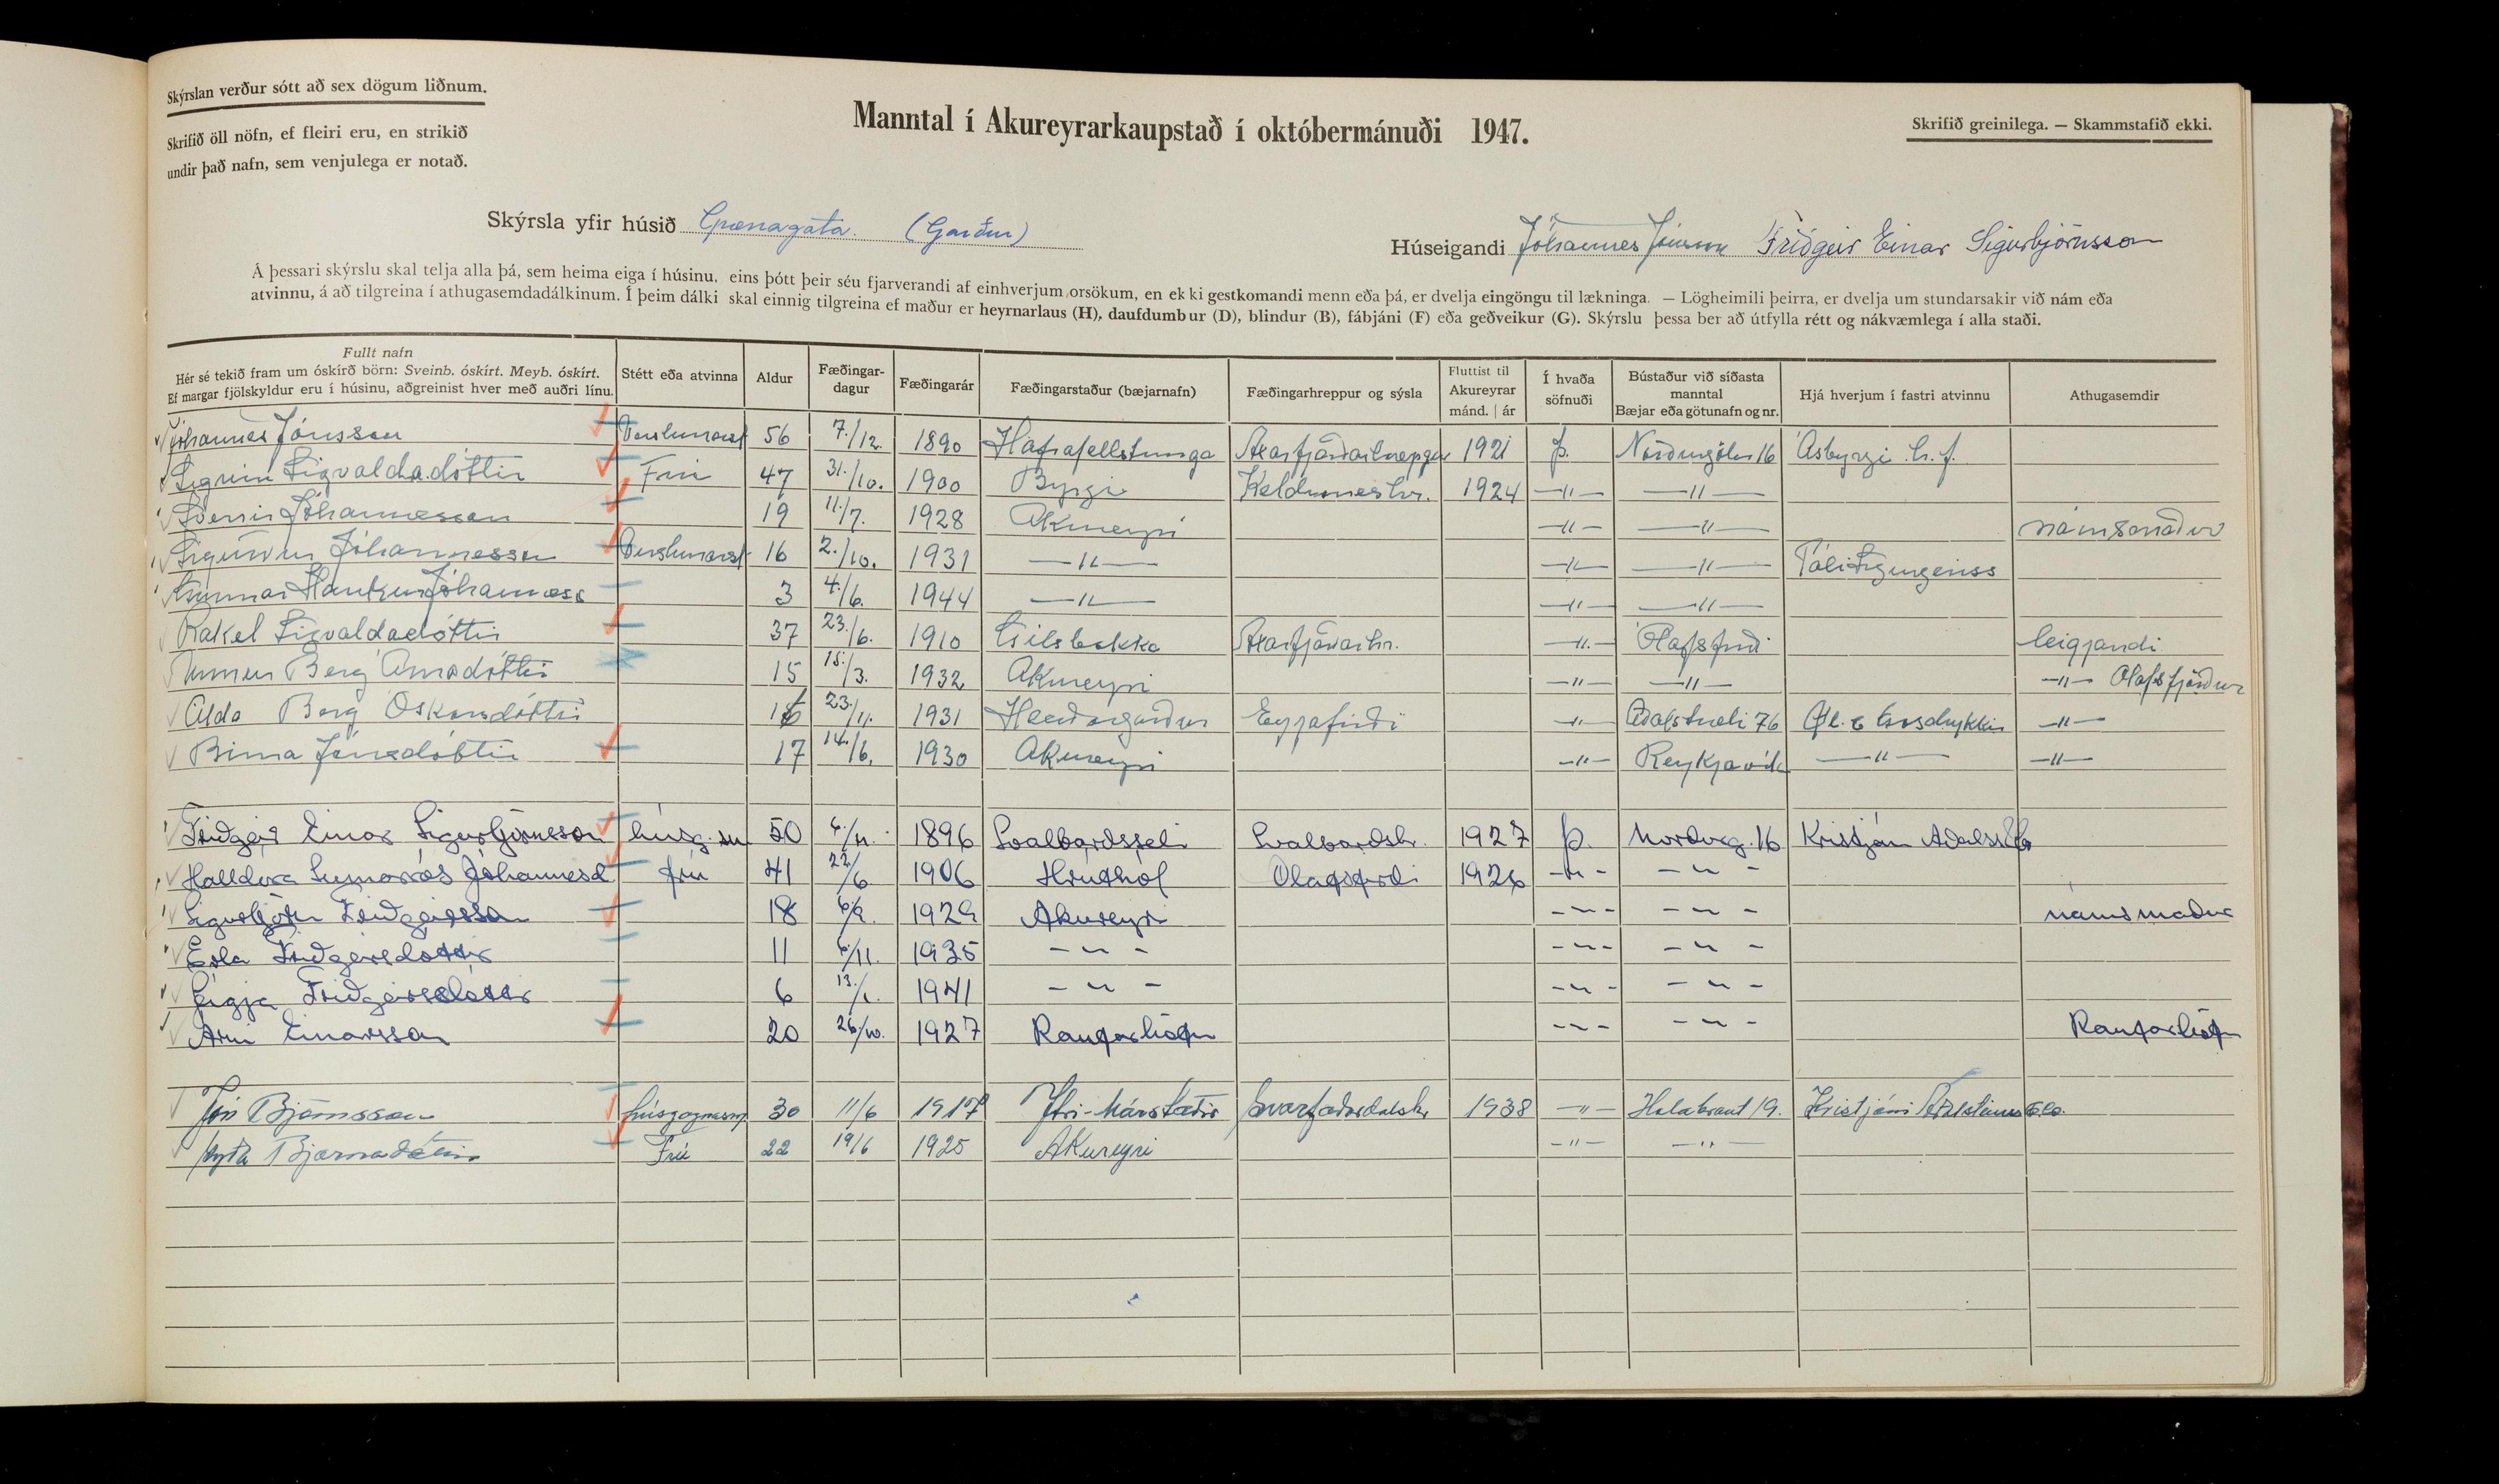 Skýrslan verður sótt að sex dögum liðnum.
Skrifið öll nöfn, ef fleiri eru, en strikið
undir það nafn, sem venjulega er notað.
Manntal í Akureyrarkaupstað í októbermánuði 1947.
Skrifið greinilega. — Skammstafið ekki.
Skýrsla yfir húsið Grænagata. (Garður)
Húseigandi Jóhannes Jónsson Friðgeir Einar Sigurbjörnsson
Á þessari skýrslu skal telja alla þá, sem heima eiga í húsinu, eins þótt þeir séu fjarverandi af einhverjum orsökum, en ekki gestkomandi menn eða þá, er dvelja eingöngu til lækninga. — Lögheimili þeirra, er dvelja um stundarsakir við nám eða
atvinnu, á að tilgreina í athugasemdadálkinum. Í þeim dálki skal einnig tilgreina ef maður er heyrnarlaus (H), daufdumbur (D), blindur (B), fábjáni (F) eða geðveikur (G). Skýrslu þessa ber að útfylla rétt og nákvæmlega í alla staði.
Fullt nafn
Hér sé tekið fram um óskírð börn: Sveinb. óskírt. Meyb. óskírt.
Ef margar fjölskyldur eru í húsinu, aðgreinist hver með auðri línu.
Stétt eða atvinna
Aldur
Fæðingar-
dagur
Fæðingarár
Fæðingarstaður (bæjarnafn)
Fæðingarhreppur og sýsla
Fluttist til
Akureyrar
mánd. | ár
Í hvaða
söfnuði
Bústaður við síðasta
manntal
Bæjar eða götunafn og nr.
Hjá hverjum í fastri atvinnu
Athugasemdir
Jóhannes Jónsson 56 7./12. 1890 Hafrafellstunga Axarfjarðarhreppur 1921 Þ. Norðurgötu 16 Ásbyrgi h.f.
Sigrún Sigvaldadóttir Frú 47 31./10. 1900 Byrgi Kelduneshr. 1924 —"— —"—
Sverrir Jóhannesson 19 11./7. 1928 Akureyri —"— —"— námsmaður
Sigurður Jóhannesson 16 2./10. 1931 —"— —"— —"— Páli Sigurgeirss
Gunnar Haukur Jóhanness 3 4./6. 1944 —"— —"— —"—
Rakel Sigvaldadóttir 37 23./6. 1910 Gilsbakka Axarfjarðarhr. —"— Ólafsfirði leigjandi
Berg 15 18./3. 1932 Akureyri —"— —"— —"— Ólafsfjörður
Alda Berg Óskarsdóttir 16 23./11. 1931 Eyjafirði —"— Aðalstræti 76 —"—
Birna Jónsdóttir 17 14./6. 1930 Akureyri —"— Reykjavík —"— —"—
Friðgeir Einar Sigurbjörnsson húsg.sm 50 6./11. 1896 Svalbarðsseli Svalbarðshr. 1927 Þ. Norðurg. 16 Kristján Aðalst
Halldóra Sumarrós Jóhannesd frú 41 22/6 1906 Hrúthól Ólafsfirdi 1926 —"— —"—
Sigurbjörn Friðgeirsson 18 1929 Akureyri —"— —"— námsmaður
Erla Friðgeirsdóttir 11 6/11. 1935 —"— —"— —"—
Gígja Friðgeirsdóttir 6 13./1. 1941 —"— —"— —"—
Árni Einarsson 20 26/10. 1927 Raufarhöfn —"— —"— Raufarhöfn
Jón Björnsson húsgagnasm 30 11/6 1917 Ytri-Másstaðir Svarfaðardalshr 1938 —"— Holabraut 19. Kristjáni
Bjarnadóttir Frú 22 19/6 1925 Akureyri —"— —"—